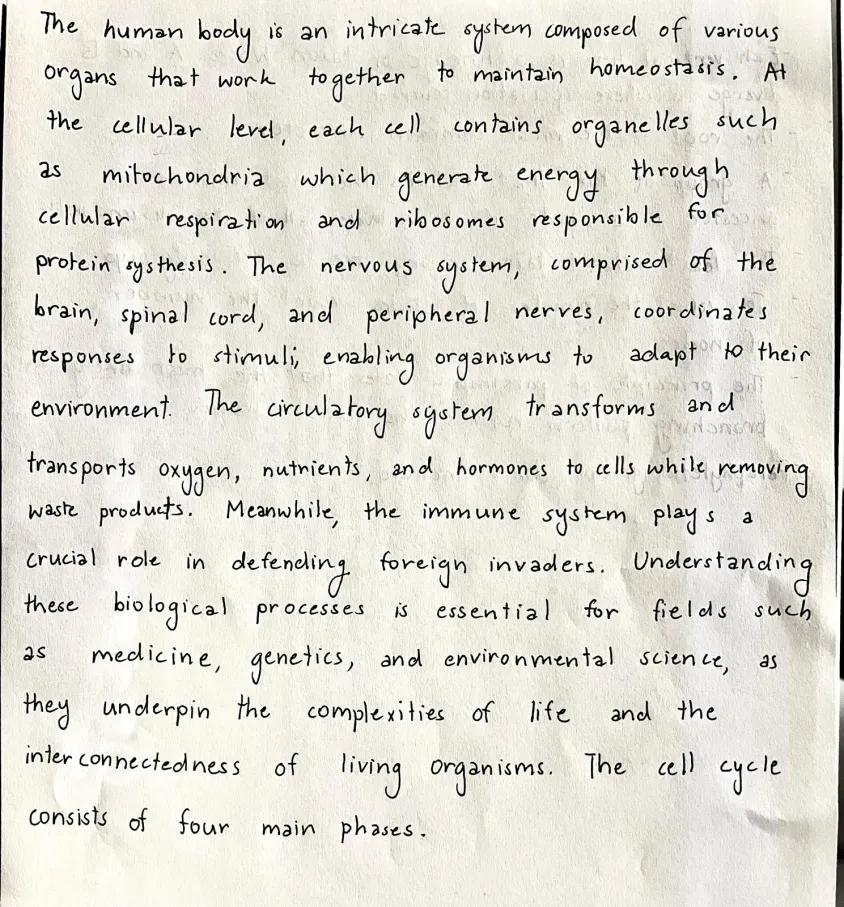 The human body is an intricate system composed of various
organs that work together to maintain homeostasis. At
the cellular level, each cell contains organelles such
as mitochondria which generate energy through
cellular respiration and ribosomes responsible for
protein systhesis. The nervous system, comprised of the
brain, spinal cord, and peripheral nerves, coordinates
responses to stimuli, enabling organisms to adapt to their
environment. The circulatory system transforms and
transports oxygen, nutrients, and hormones to cells while removing
waste products. Meanwhile, the immune system plays a
crucial role in defending foreign invaders. Understanding
these biological processes is essential for fields such
as medicine, genetics, and environmental science, as
they underpin the complexities of life and the
interconnectedness of living organisms. The cell cycle
consists of four main phases.